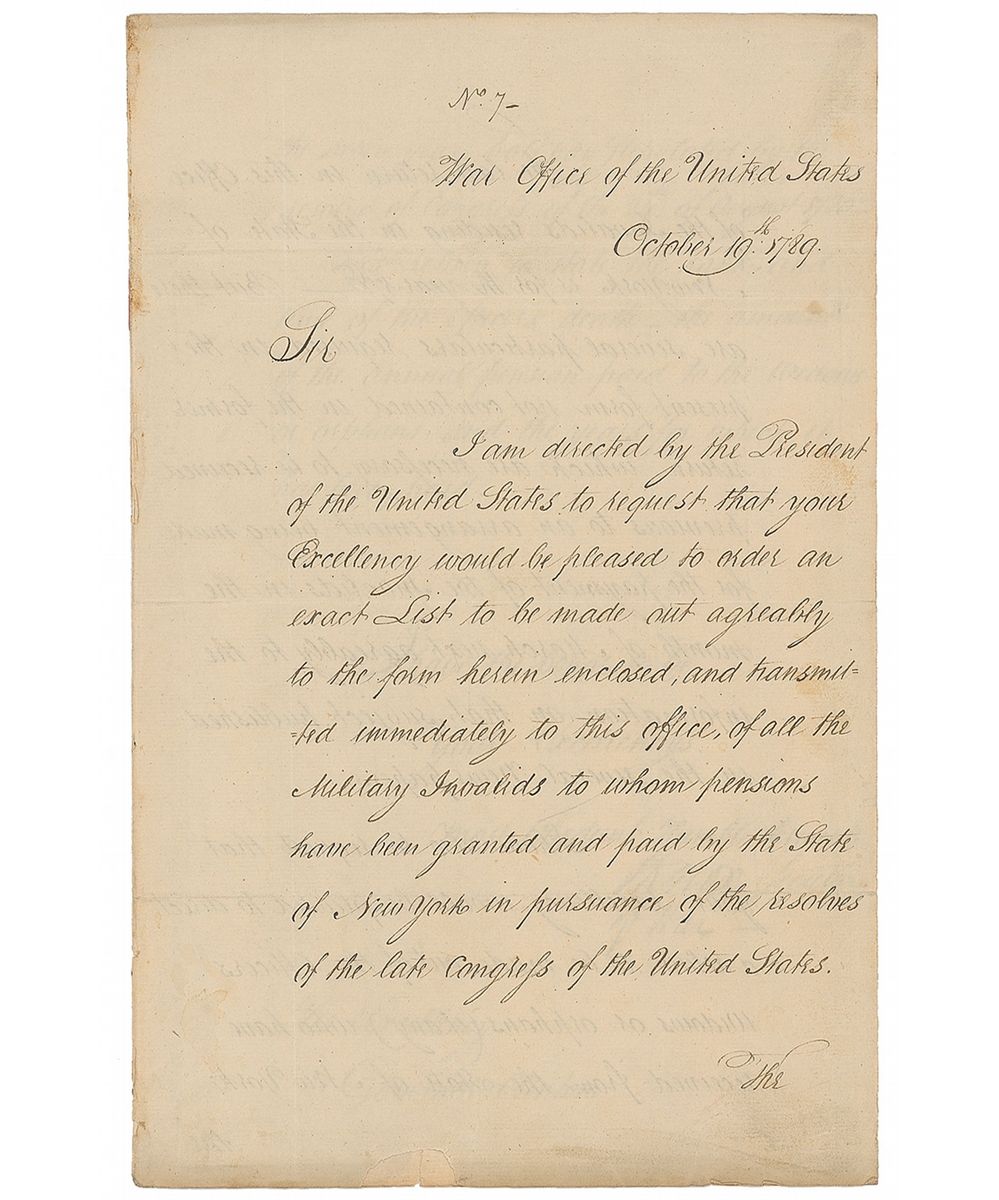 No. 7–
War Office of the United States
October 19.th 1789.
Sir
I am directed by the President
of the United States to request that your
Excellency would be pleased to order an
exact List to be made out agreably
to the form herein enclosed, and transmit=
=ted immediately to this office, of all the
Military Invalids to whom pensions
have been granted and paid by the State
of New York in pursuance of the resolves
of the late Congress of the United States.
The